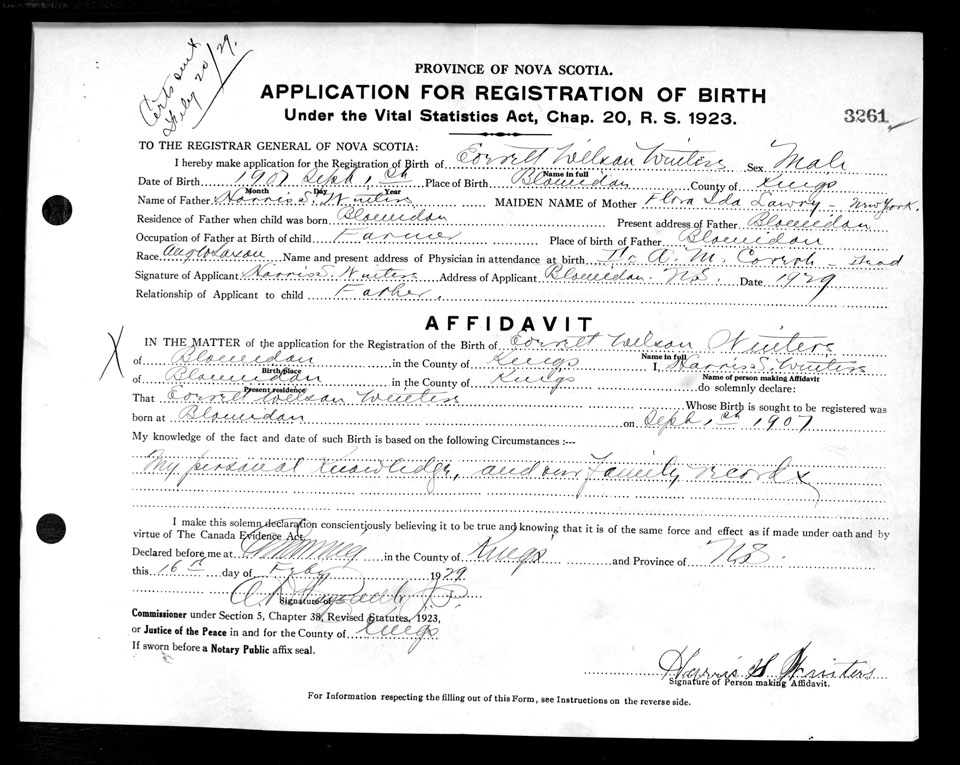 Certs sent
Feby 20/29.
PROVINCE OF NOVA SCOTIA.
APPLICATION FOR REGISTRATION OF BIRTH
Under the Vital Statistics Act, Chap. 20, R. S. 1923.
3261
TO THE REGISTRAR GENERAL OF NOVA SCOTIA:
I hereby make application for the Registration of Birth of Everett Wilson Winters Sex Male
Name in full
Date of Birth 1907 Sept 1st Place of Birth Blomidon County of Kings
Month Day Year
Name of Father Harris S. Winters MAIDEN NAME of Mother Flora Ida Lawry - New York.
Residence of Father when child was born Blomidon Present address of Father Blomidon
Occupation of Father at Birth of child Farmer Place of birth of Father Blomidon
Race Anglo Saxon Name and present address of Physician in attendance at birth Dr. A. M. - Dead
Signature of Applicant Harris S. Winters Address of Applicant Blomidon N.S. Date 1929
Relationship of Applicant to child Father.
AFFIDAVIT
X
IN THE MATTER of the application for the Registration of the Birth of Everett Wilson Winters
Name in full
of Blomidon in the County of Kings I, Harris S. Winters
Birth place Name of person making Affidavit
of Blomidon in the County of Kings do solemnly declare:
Present residence
That Everett Wilson Winters Whose Birth is sought to be registered was
born at Blomidon on Sept 1st 1907
My knowledge of the fact and date of such Birth is based on the following Circumstances :—
My personal Knowledge, and our Family record
I make this solemn declaration conscientiously believing it to be true and knowing that it is of the same force and effect as if made under oath and by
virtue of The Canada Evidence Act.
Declared before me at Canning in the County of Kings and Province of N.S.
this 16th day of Feby 1929
Signature of
Commissioner under Section 5, Chapter 38, Revised Statutes, 1923,
or Justice of the Peace in and for the County of Kings
If sworn before a Notary Public affix seal.
Harris S. Winters
Signature of Person making Affidavit.
For Information respecting the filling out of this Form, see Instructions on the reverse side.